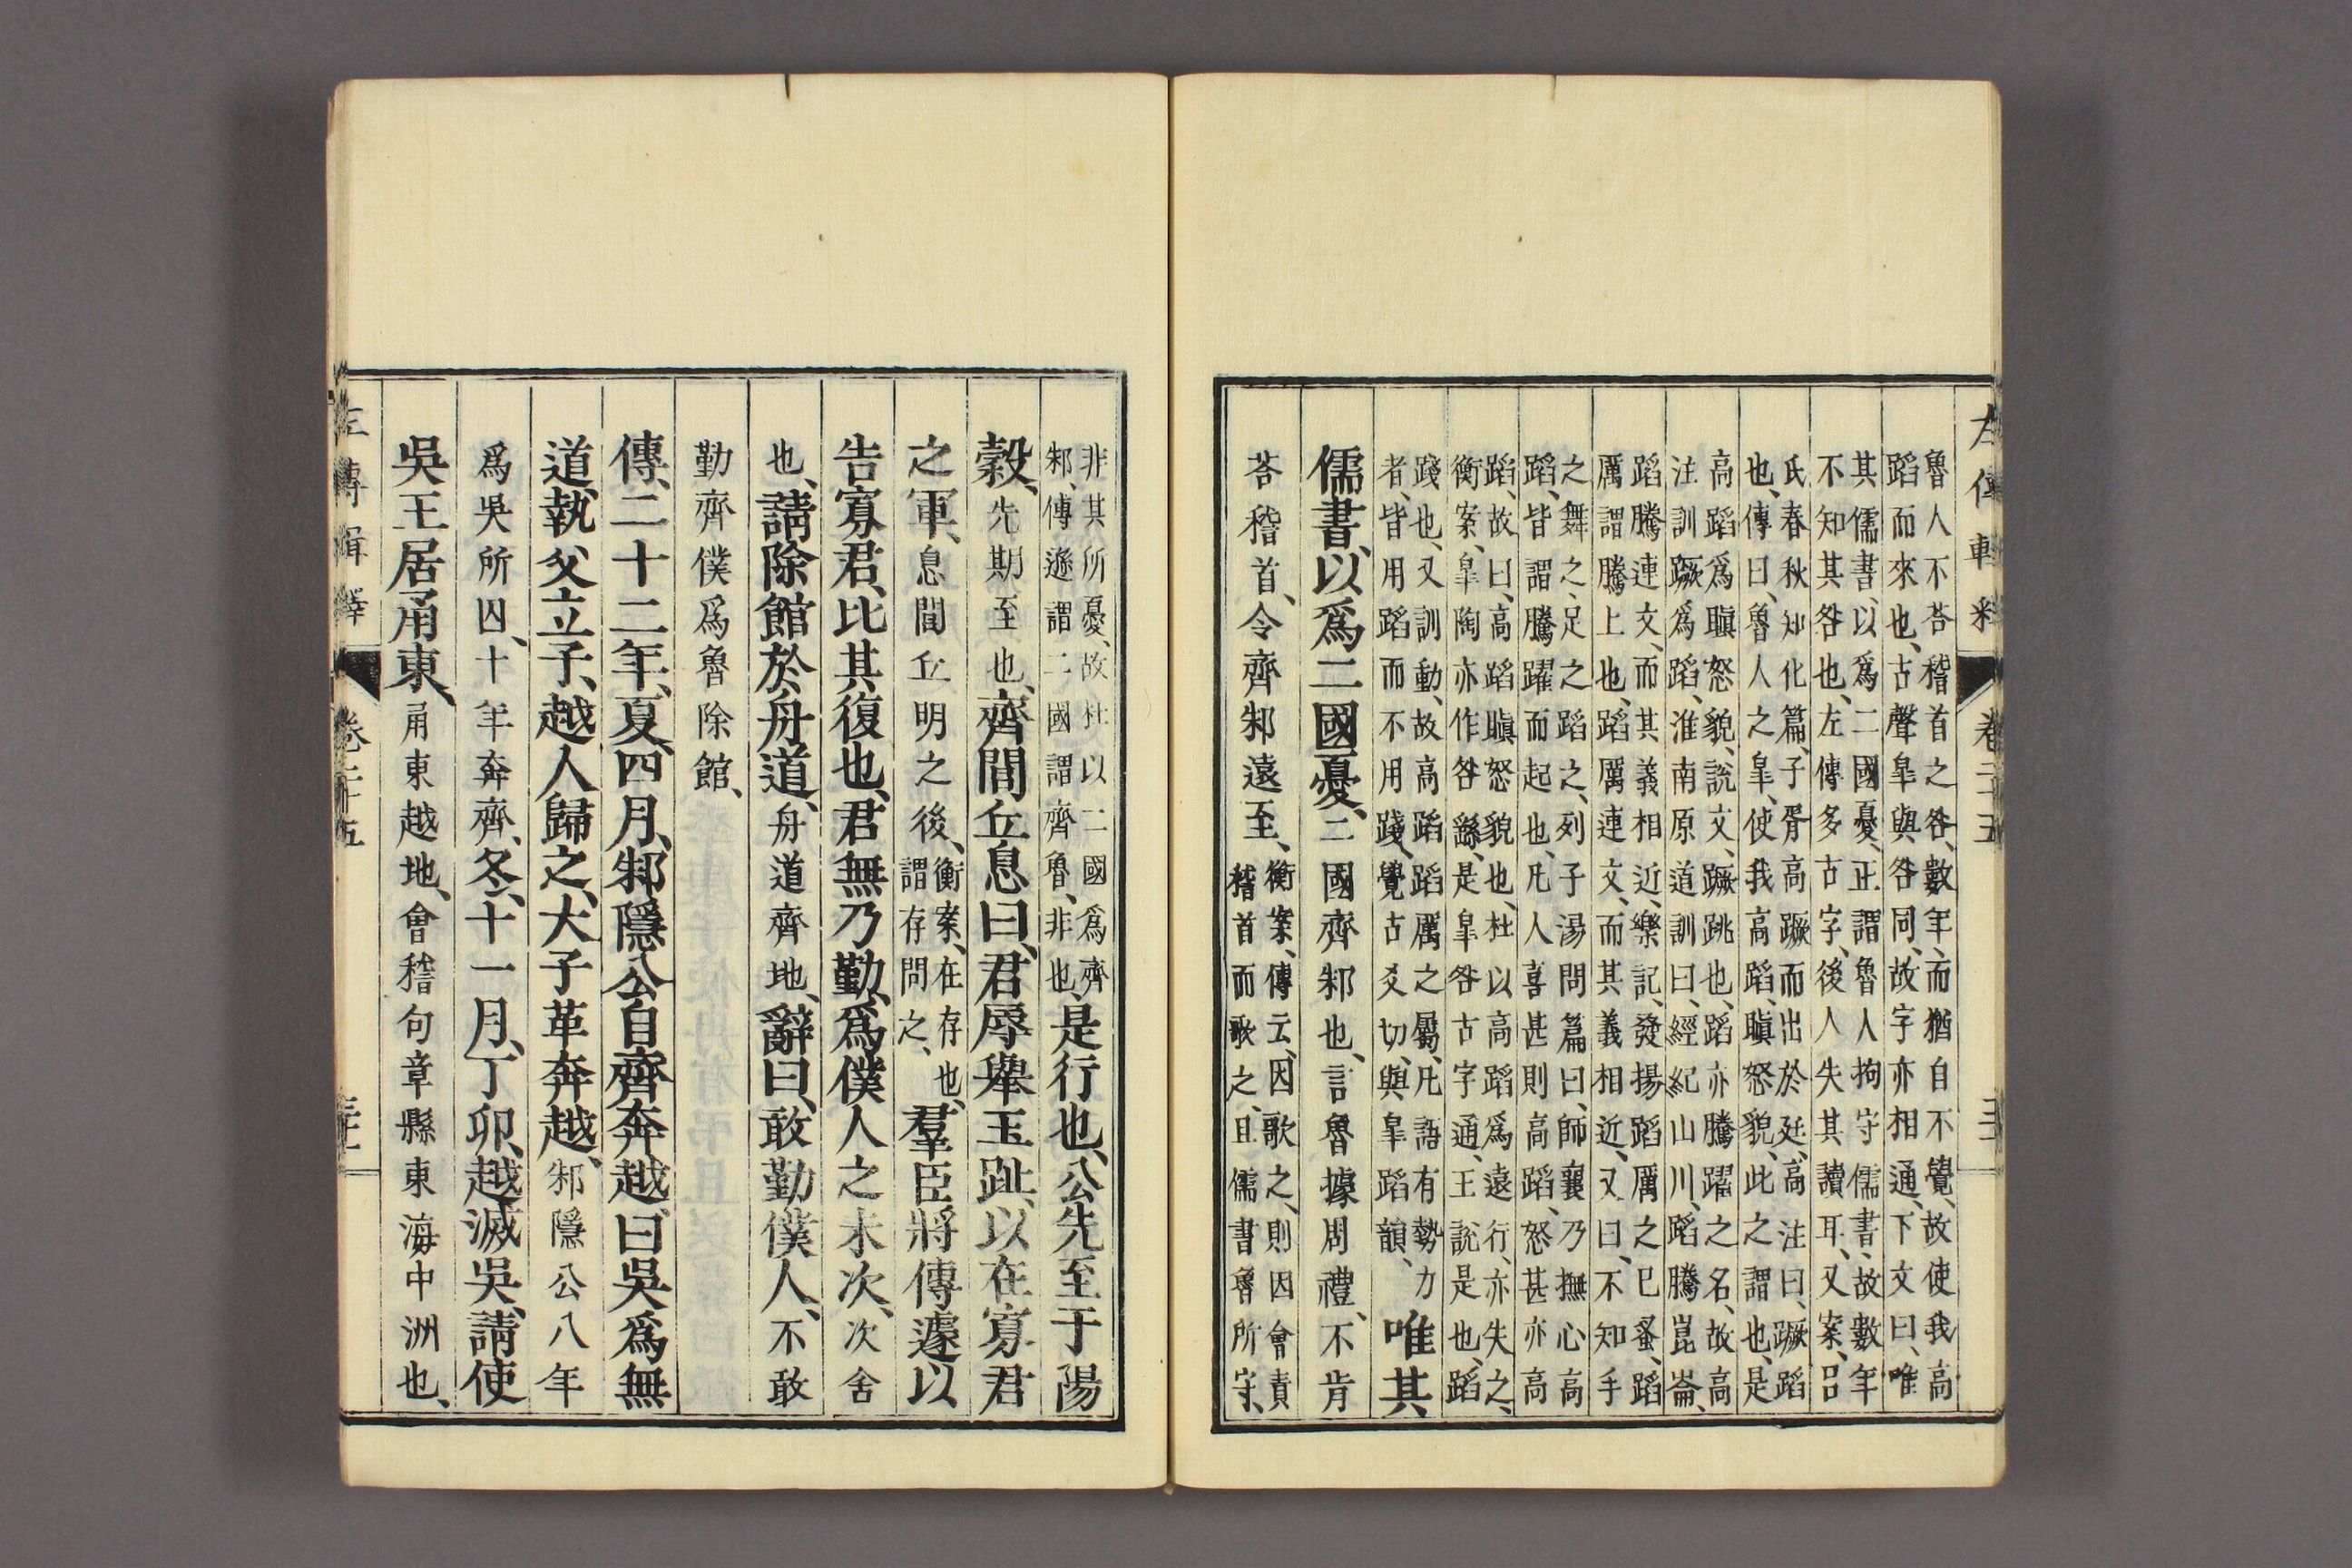 左傳輯釋 卷二十五
魯人不荅稽首之咎、數年、而猶自不覺、故使我高
蹈而來也、古聲皐與咎同、故字亦相通、下文曰、唯
其儒書、以爲二國憂、正謂魯人拘守儒書、故數年
不知其咎也、左傳多古字、後人失其讀耳、又案、呂
氏春秋知化篇、子胥高蹶而出於廷、高注曰、蹶蹈
也、傳曰、魯人之皐、使我高蹈、瞋怒貌、此之謂也、是
高蹈爲瞋怒貌、說文、蹶跳也、蹈亦騰躍之名、故高
注訓蹶爲蹈、淮南原道訓曰、經紀山川、蹈騰崑崙、
蹈騰連文、而其義相近、樂記、發揚蹈厲之已蚤、蹈
厲謂騰上也、蹈厲連文、而其義相近、又曰、不知手
之舞之、足之蹈之、列子湯問篇曰、師襄乃撫心高
蹈、皆謂騰躍而起也、凡人喜甚則高蹈、怒甚亦高
蹈、故曰、高蹈瞋怒貌也、杜以高蹈爲遠行、亦失之、
衡案、皐陶亦作咎繇、是皐咎古字通、王說是也、蹈
踐也、又訓動、故高蹈蹈厲之屬、凡語有勢力
者、皆用蹈而不用踐、覺古爻切、與皐蹈韻、唯其
儒書、以爲二國憂、二國齊邾也、言魯據周禮、不肯
荅稽首、令齊邾遠至、衡案、傳云、因歌之、則因會責
稽首而歌之、且儒書魯所守、
非其所憂、故杜以二國爲齊
邾、傳遜謂二國謂齊魯、非也、是行也、公先至于陽
穀、先期至也、齊閭丘息曰、君辱舉玉趾、以在寡君
之軍、息閭丘明之後、衡案、在存也、謂存問之、羣臣將傳遽以
告寡君、比其復也、君無乃勤、爲僕人之未次、次舍
也、請除館於舟道、舟道齊地、辭曰、敢勤僕人、不敢
勤齊僕爲魯除館、
傳、二十二年、夏、四月、邾隱公自齊奔越、曰吳爲無
道、執父立子、越人歸之、大子革奔越、邾隱公八年
爲吳所囚、十年奔齊、冬、十一月、丁卯、越滅吳、請使
吳王居甬東、甬東越地、會稽句章縣東海中洲也、
左傳輯釋 卷二十五